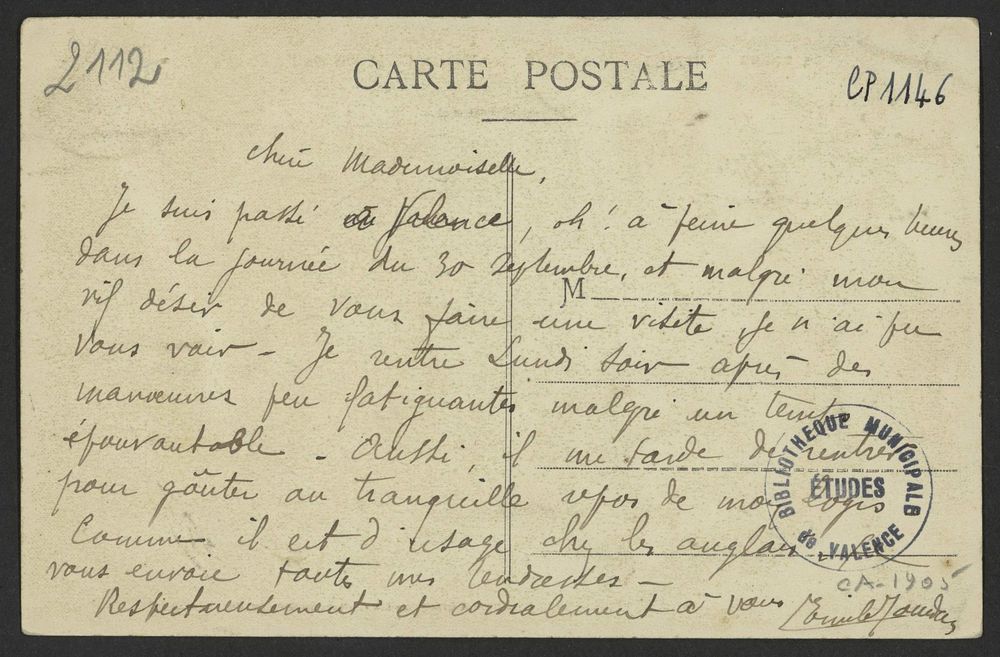 2112
CARTE POSTALE
CP1146
Chère Mademoiselle,
Je suis passé à Valence, oh! à peine quelques heures
dans la journée du 30 Septembre, et malgré mon
M
vif désir de vous faire une visite je n'ai pu
vous voir - Je rentre Lundi soir après des
manœuvres peu fatigantes malgré un temps
épouvantable - Aussi, il me tarde de rentrer
pour goûter au tranquille repos de mon logis
Comme il est d'usage chez les anglais, je
vous envoie toutes mes tendresses -
Respectueusement et cordialement à vous
BIBLIOTHEQUE MUNICIPALE
ÉTUDES
de VALENCE
CA-1905